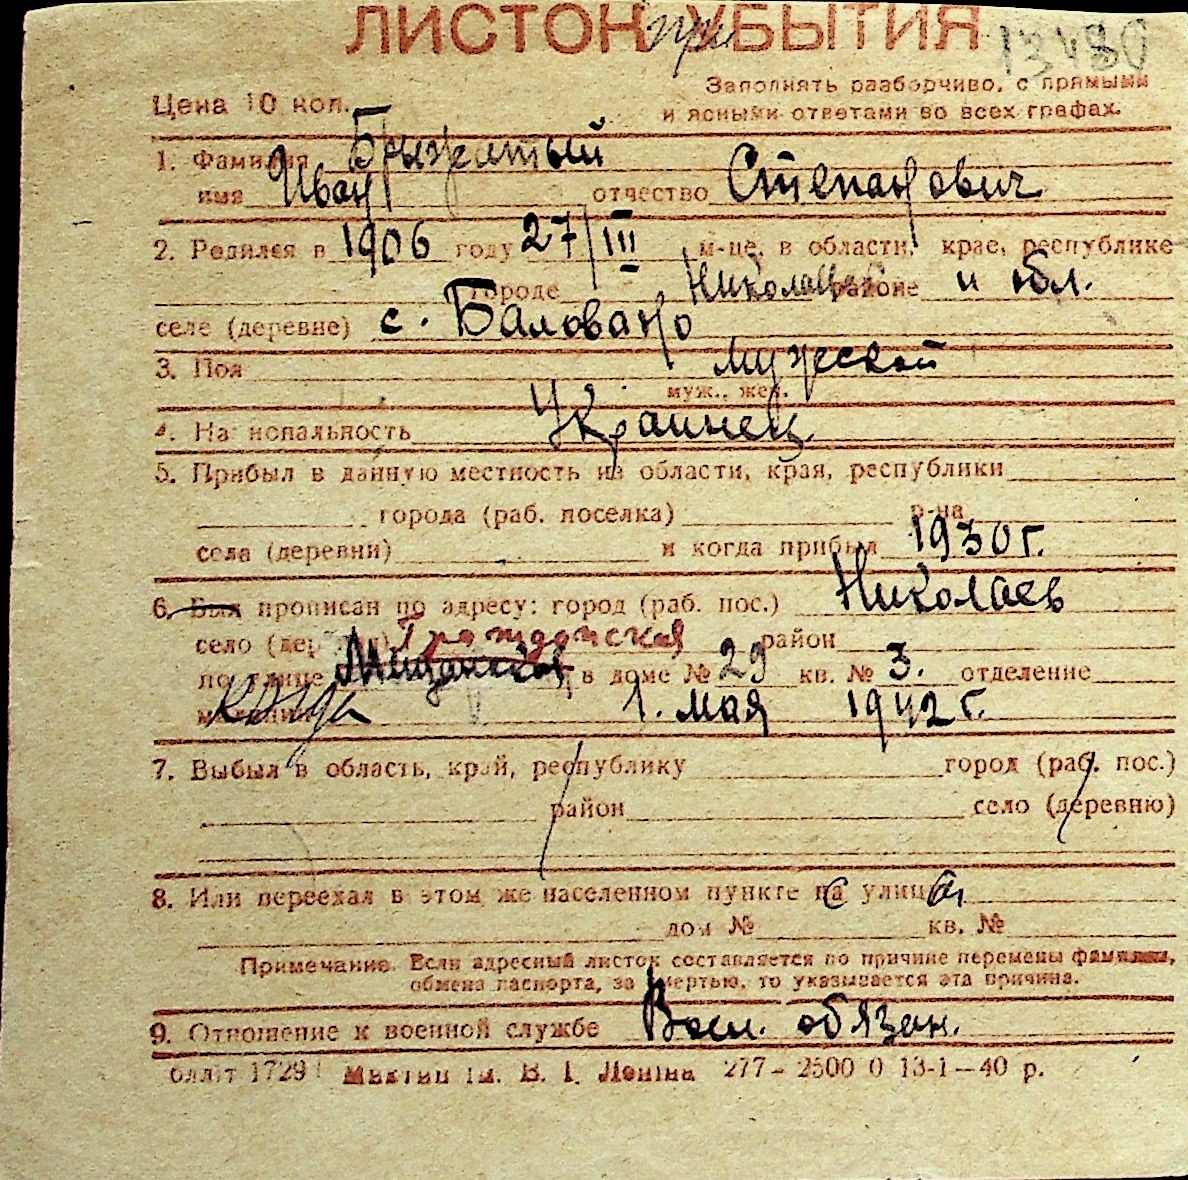 ЛИСТОК при УБЫТИЯ 13480
Заполнять разборчиво, с прямыми
Цена 10 коп. и ясными ответами во всех графах.
1. Фамилия Брыжатый
имя Иван отчество Степанович
2. Родился в 1906 году 27/III м-це, в области, крае, республике
городе Николаевск районе и обл.
селе (деревне) с. Баловано
3. Пол мужской
муж., жен.
4. Национальность Украинец
5. Прибыл в данную местность из области, края, республики
города (раб. поселка) р-на
села (деревни) и когда прибыл 1930 г.
6. Был прописан по адресу: город (раб. пос.) Николаев
село (дер) Гражданская район
по улице Мещанская в доме № 29 кв. № 3. отделение
милиции когда 1. мая 1942 г.
7. Выбыл в область, край, республику город (раб. пос.)
район село (деревню)
8. Или переехал в этом же населенном пункте с улицы
дом № кв. №
Примечание. Если адресный листок составляется по причине перемены фамилии,
обмена паспорта, за смертью, то указывается эта причина.
9. Отношение к военной службе Воен. обязан.
1729 ім. В. І. Леніна 277 — 2500 0 13-1—40 р.